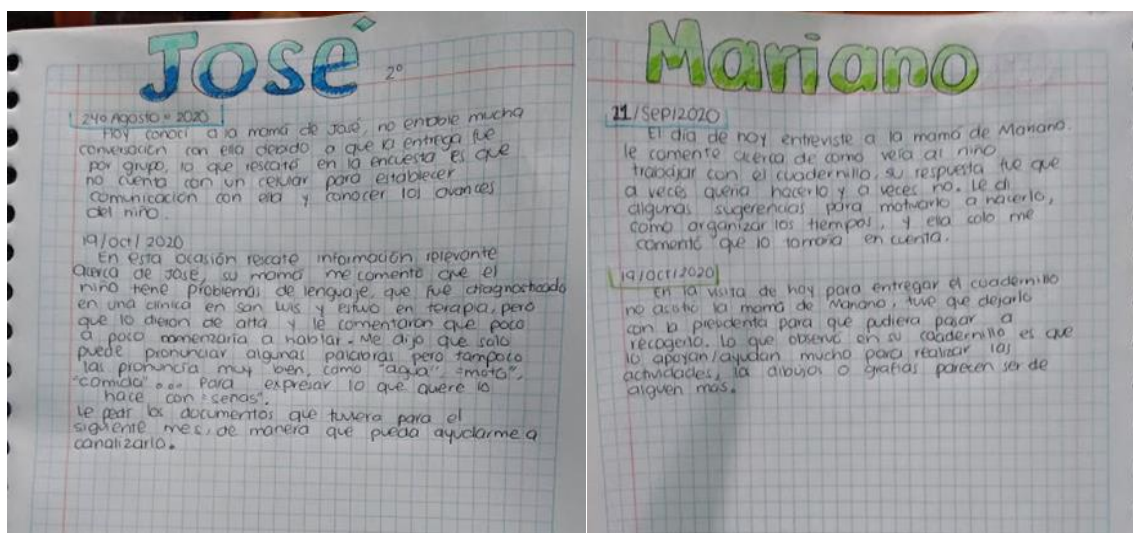 José
2º
24º Agosto º 2020
Hoy conocí a la mamá de José, no entable mucha
conversación con ella debido a que la entrega fue
por grupo, lo que rescaté en la encuesta es que
no cuenta con un celular para establecer
comunicación con ella y conocer los avances
del niño.
19/oct/2020
En esta ocasión rescate información relevante
acerca de José, su mamá me comento que el
niño tiene problemas de lenguaje, que fue diagnosticado
en una clínica en san Luis y estuvo en terapia, pero
que lo dieron de alta y le comentaron que poco
a poco comenzaria a hablar. Me dijo que solo
puede pronunciar algunas palabras pero tampoco
las pronuncia muy bien, como "agua", "moto",
"comida"... Para expresar lo que quiere lo
hace con "señas".
Le pedí los documentos que tuviera para el
siguiente mes, de manera que pueda ayudarme a
canalizarlo.
Mariano
21/Sep/2020
El día de hoy entreviste a la mamá de Mariano.
le comente acerca de como veía al niño
trabajar con el cuadernillo, su respuesta fue que
a veces quería hacerlo y a veces no. Le di
algunas sugerencias para motivarlo a hacerlo,
como organizar los tiempos, y ella solo me
comentó que lo tomaria en cuenta.
19/oct/2020
En la visita de hoy para entregar el cuadernillo
no asistio la mamá de Mariano, tuve que dejarlo
con la presidenta para que pudiera pasar a
recogerlo. Lo que observé en su cuadernillo es que
lo apoyan/ayudan mucho para realizar las
actividades, la dibujos o grafías parecen ser de
alguien más.